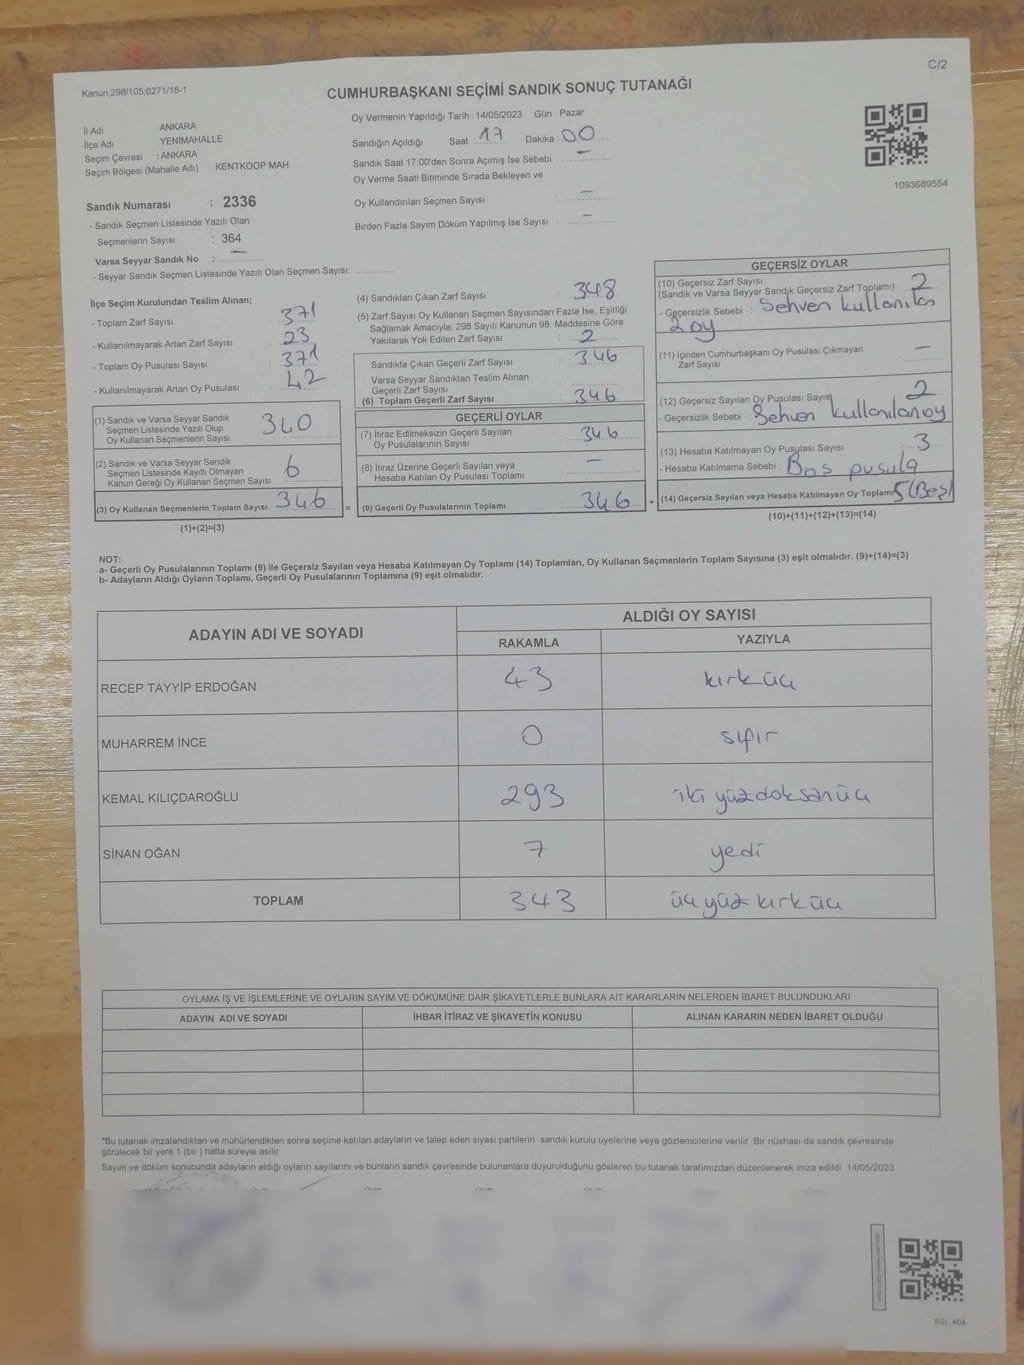 C/2
Kanun;298/105;6271/18-1
CUMHURBAŞKANI SEÇİMİ SANDIK SONUÇ TUTANAĞI
İl Adı : ANKARA
İlçe Adı : YENİMAHALLE
Seçim Çevresi : ANKARA
Seçim Bölgesi (Mahalle Adı) : KENTKOOP MAH.
Sandık Numarası : 2336
- Sandık Seçmen Listesinde Yazılı Olan
Seçmenlerin Sayısı : 364
Varsa Seyyar Sandık No : —
- Seyyar Sandık Seçmen Listesinde Yazılı Olan Seçmen Sayısı: ............
Oy Vermenin Yapıldığı Tarih : 14/05/2023 Gün : Pazar
Sandığın Açıldığı Saat : 17 Dakika : 00
Sandık Saat 17:00'den Sonra Açımış İse Sebebi : —
Oy Verme Saati Bitiminde Sırada Bekleyen ve
Oy Kullandırılan Seçmen Sayısı : —
Birden Fazla Sayım Döküm Yapılmış İse Sayısı : —
1093689554
İlçe Seçim Kurulundan Teslim Alınan;
- Toplam Zarf Sayısı : 371
- Kullanılmayarak Artan Zarf Sayısı : 23
- Toplam Oy Pusulası Sayısı : 371
- Kullanılmayarak Artan Oy Pusulası : 42
(1) Sandık ve Varsa Seyyar Sandık
Seçmen Listesinde Yazılı Olup
Oy Kullanan Seçmenlerin Sayısı 340
(2) Sandık ve Varsa Seyyar Sandık
Seçmen Listesinde Kayıtlı Olmayan
Kanun Gereği Oy Kullanan Seçmen Sayısı 6
(3) Oy Kullanan Seçmenlerin Toplam Sayısı 346 =
(1)+(2)=(3)
(4) Sandıktan Çıkan Zarf Sayısı : 348
(5) Zarf Sayısı Oy Kullanan Seçmen Sayısından Fazla İse, Eşitliği
Sağlamak Amacıyla, 298 Sayılı Kanunun 98. Maddesine Göre
Yakılarak Yok Edilen Zarf Sayısı : 2
Sandıkta Çıkan Geçerli Zarf Sayısı : 346
Varsa Seyyar Sandıktan Teslim Alınan
Geçerli Zarf Sayısı
(6) Toplam Geçerli Zarf Sayısı : 346
GEÇERLİ OYLAR
(7) İtiraz Edilmeksizin Geçerli Sayılan
Oy Pusulalarının Sayısı : 346
(8) İtiraz Üzerine Geçerli Sayılan veya
Hesaba Katılan Oy Pusulası Toplamı : —
(9) Geçerli Oy Pusulalarının Toplamı : 346 +
GEÇERSİZ OYLAR
(10) Geçersiz Zarf Sayısı
(Sandık ve Varsa Seyyar Sandık Geçersiz Zarf Toplamı) : 2
- Geçersizlik Sebebi : Sehven kullanılan
2 oy
(11) İçinden Cumhurbaşkanı Oy Pusulası Çıkmayan
Zarf Sayısı : —
(12) Geçersiz Sayılan Oy Pusulası Sayısı : 2
- Geçersizlik Sebebi : Sehven kullanılan oy
(13) Hesaba Katılmayan Oy Pusulası Sayısı : 3
- Hesaba Katılmama Sebebi : Boş pusula
(14) Geçersiz Sayılan veya Hesaba Katılmayan Oy Toplamı 5 (Beş)
(10)+(11)+(12)+(13)=(14)
NOT:
a- Geçerli Oy Pusulalarının Toplamı (9) ile Geçersiz Sayılan veya Hesaba Katılmayan Oy Toplamı (14) Toplamları, Oy Kullanan Seçmenlerin Toplam Sayısına (3) eşit olmalıdır. (9)+(14)=(3)
b- Adayların Aldığı Oyların Toplamı, Geçerli Oy Pusulalarının Toplamına (9) eşit olmalıdır.
ADAYIN ADI VE SOYADI
ALDIĞI OY SAYISI
RAKAMLA YAZIYLA
RECEP TAYYİP ERDOĞAN 43 kırküç
MUHARREM İNCE 0 sıfır
KEMAL KILIÇDAROĞLU 293 iki yüzdoksanüç
SİNAN OĞAN 7 yedi
TOPLAM 343 üçyüzkırküç
OYLAMA İŞ VE İŞLEMLERİNE VE OYLARIN SAYIM VE DÖKÜMÜNE DAİR ŞİKAYETLERLE BUNLARA AİT KARARLARIN NELERDEN İBARET BULUNDUKLARI
ADAYIN ADI VE SOYADI İHBAR İTİRAZ VE ŞİKAYETİN KONUSU ALINAN KARARIN NEDEN İBARET OLDUĞU
*Bu tutanak imzalandıktan ve mühürlendikten sonra seçime katılan adayların ve talep eden siyasi partilerin sandık kurulu üyelerine veya gözlemcilerine verilir. Bir nüshası da sandık çevresinde
görülecek bir yere 1 (bir ) hafta süreyle asılır
Sayım ve döküm sonucunda adayların aldığı oyların sayılarını ve bunların sandık çevresinde bulunanlara duyurulduğunu gösteren bu tutanak tarafımızdan düzenlenerek imza edildi. 14/05/2023